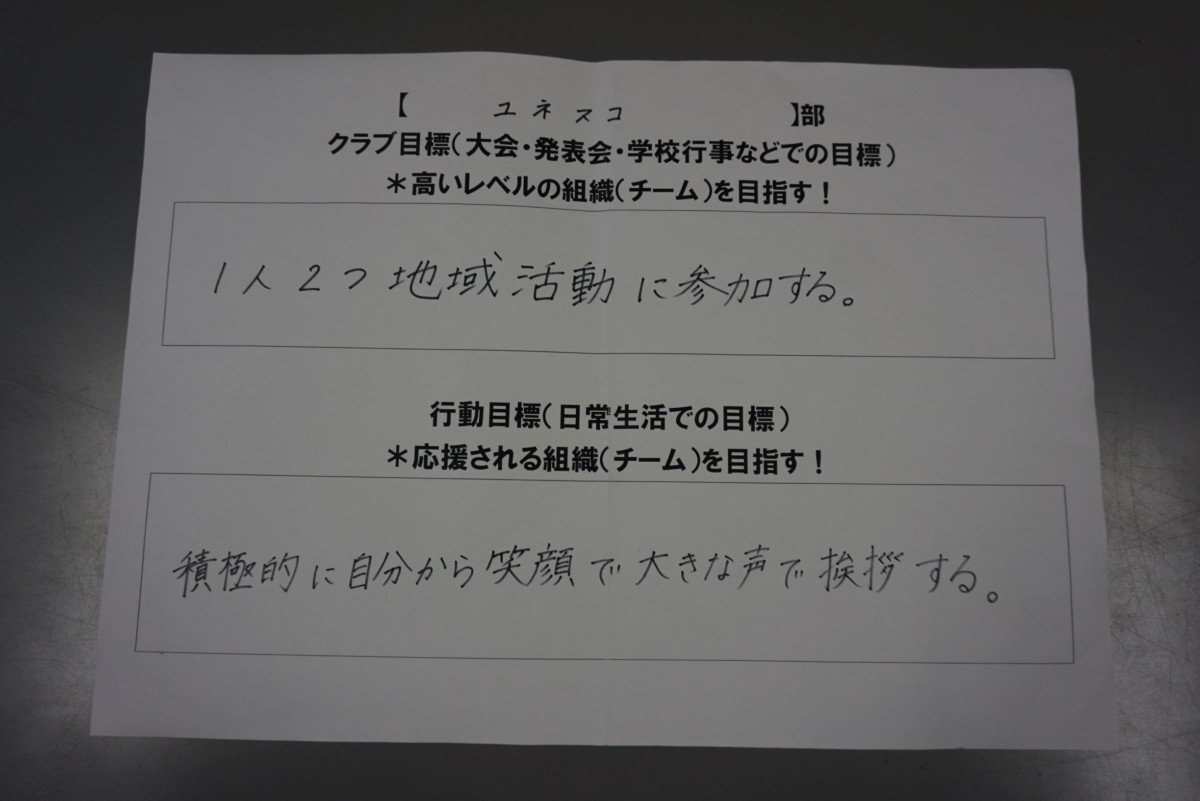 【 ユネスコ 】部
クラブ目標(大会・発表会・学校行事などでの目標)
＊高いレベルの組織(チーム)を目指す！
1人2つ地域活動に参加する。
行動目標(日常生活での目標)
＊応援される組織(チーム)を目指す！
積極的に自分から笑顔で大きな声で挨拶する。